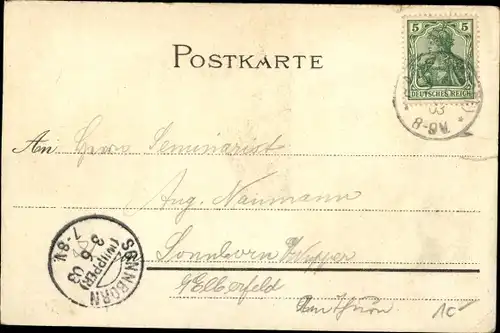 POSTKARTE
5 5
DEUTSCHES REICH
03
8-9V.
An Herrn Seminarist
Aug. Naumann
Sonnborn b/Wupper
Elberfeld
SONNBORN
(WUPPER)
3 6
03
7-8V.